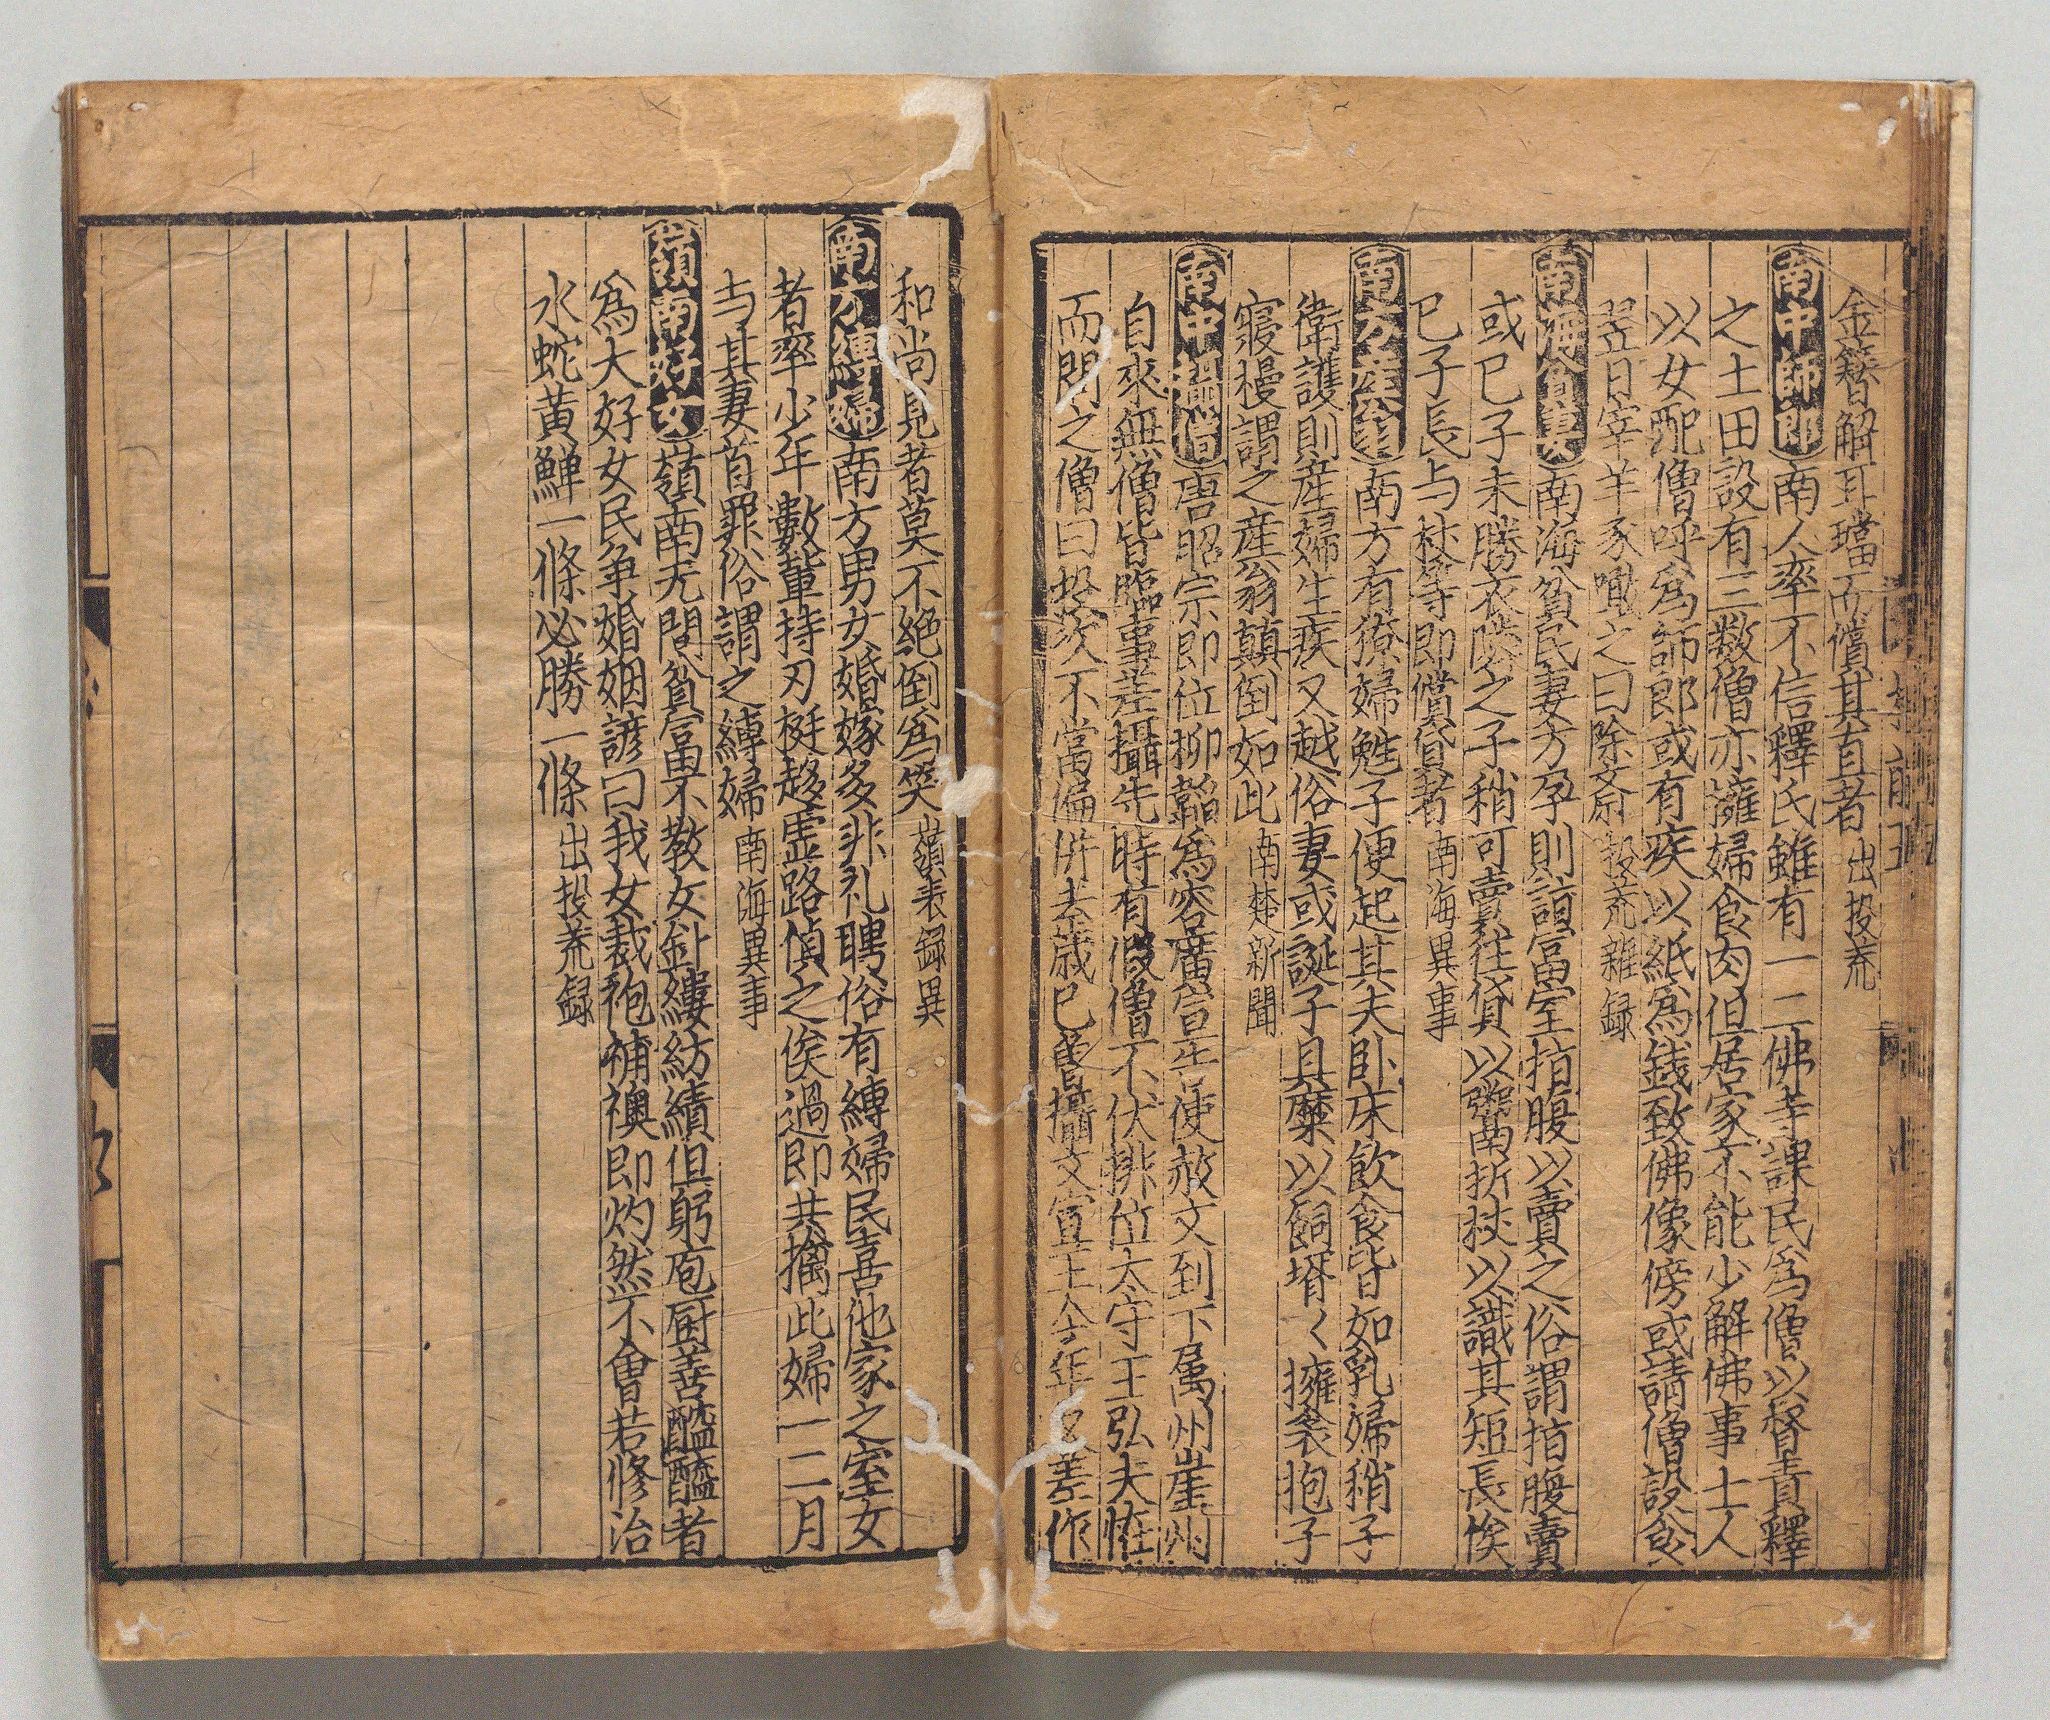 金簪解耳璫而償其直者出投荒
南中師郎南人率不信釋氏雖有一二佛寺課民爲僧以督責釋
之土田設有三數僧亦擁婦食肉但居家不能少解佛事土人
以女配僧呼爲師郎或有疾以紙爲錢致佛像傍或請僧設食
翌日宰羊豕噉之曰除齋投荒雜録
南海貧妻南海貧民妻方孕則詣富室指腹以賣之俗謂指腹賣
或已子未勝衣隣之子稍可賣往貸以鬻南折杖以識其短長俟
已子長与杖等即償貸者南海異事
南方産翁南方有獠婦甦子便起其夫卧床飲食皆如乳婦稍子
衛護則産婦生疾又越俗妻或誕子具糜以飼壻〻擁衾抱子
寢榻謂之産翁顛倒如此南楚新聞
南中唐昭宗即位柳韜爲容廣宣告使赦文到下属州崖州
自來無僧皆臨事差攝先時有假僧不伏排位太守王弘夫怪
而問之僧曰役次不當偏併去歳已曾攝文宣王今年又差作
和尚見者莫不絶倒爲笑嶺表録異
南方縛婦南方男女婚嫁多非礼聘俗有縛婦民喜他家之室女
者率少年數輩持刃挺趍虚路偵之俟過即共擒此婦一二月
与其妻首罪俗謂之縛婦南海異事
嶺南好女嶺南无問貧富不教女針縷紡績但躬庖厨善醯醢者
爲大好女民争婚姻諺曰我女裁袍補襖即灼然不會若修治
水蛇黄鱓一條必勝一條出投荒録